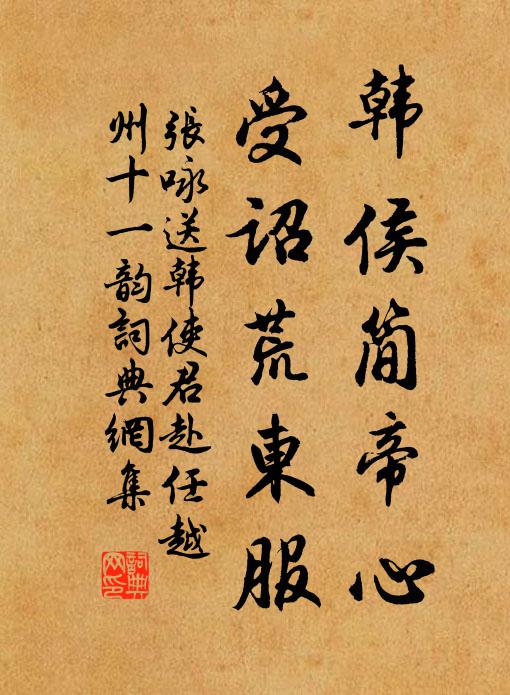 韩侯简帝心
受诏荒東服
張咏送韩使君赴任越
州十一韵詞典網集
詞典
网印